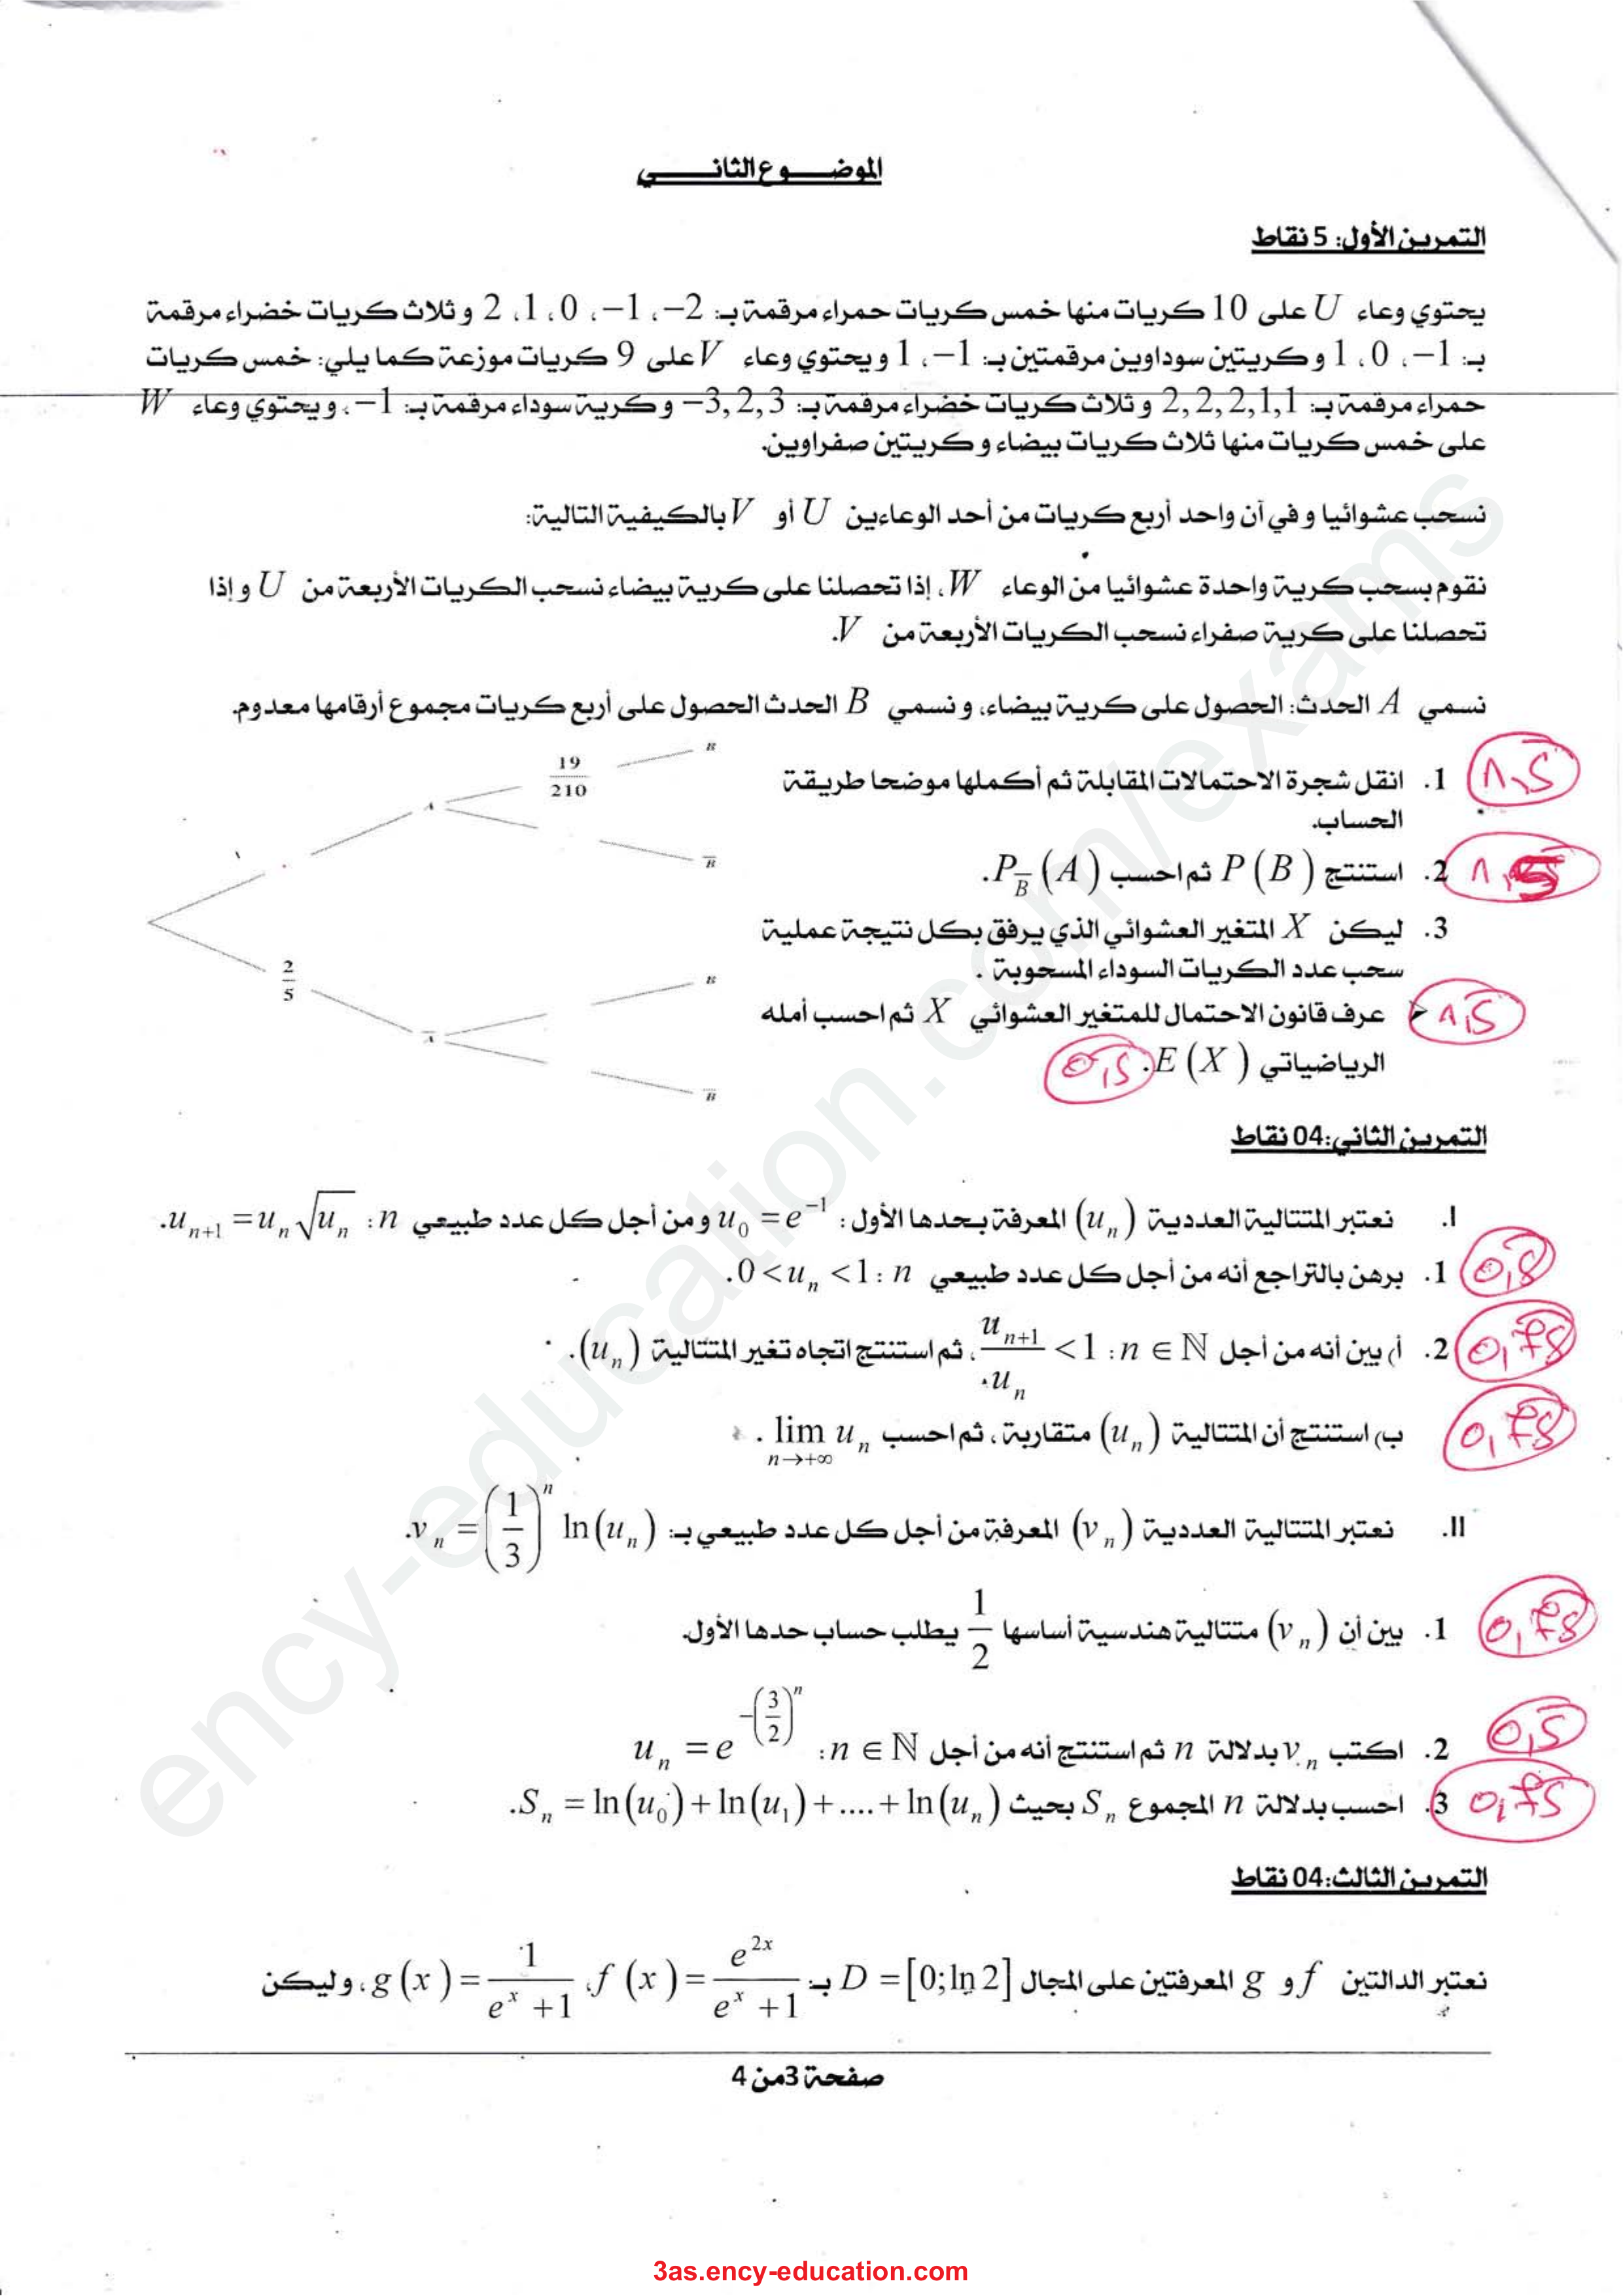 الموضوع الثاني
التمرين الأول: 5 نقاط
يحتوي وعاء U على 10 كريات منها خمس كريات حمراء مرقمة بـ: 2−، 1−، 0، 1، 2 و ثلاث كريات خضراء مرقمة
بـ: 1−، 0، 1 و كريتين سوداوين مرقمتين بـ: 1−، 1 و يحتوي وعاء V على 9 كريات موزعة كما يلي: خمس كريات
حمراء مرقمة بـ: 2,2,2,1,1 و ثلاث كريات خضراء مرقمة بـ: −3,2,3 و كرية سوداء مرقمة بـ: 1−، و يحتوي وعاء W
على خمس كريات منها ثلاث كريات بيضاء و كريتين صفراوين.
نسحب عشوائيا و في آن واحد أربع كريات من أحد الوعاءين U أو V بالكيفية التالية:
نقوم بسحب كرية واحدة عشوائيا من الوعاء W، إذا تحصلنا على كرية بيضاء نسحب الكريات الأربعة من U و إذا
تحصلنا على كرية صفراء نسحب الكريات الأربعة من V.
نسمي A الحدث: الحصول على كرية بيضاء، و نسمي B الحدث الحصول على أربع كريات مجموع أرقامها معدوم.
1. انقل شجرة الاحتمالات المقابلة ثم أكملها موضحا طريقة
الحساب.
1,5
2. استنتج P(B) ثم احسب P_B̄(A).
3. ليكن X المتغير العشوائي الذي يرفق بكل نتيجة عملية
سحب عدد الكريات السوداء المسحوبة .
➤ عرف قانون الاحتمال للمتغير العشوائي X ثم احسب أمله
الرياضياتي E(X).
1,5
0,5
B
19/210
A
B̄
2/5
B
Ā
B̄
التمرين الثاني: 04 نقاط
I. نعتبر المتتالية العددية (u_n) المعرفة بحدها الأول: u_0 = e^{-1} و من أجل كل عدد طبيعي n : u_{n+1} = u_n √u_n.
1. برهن بالتراجع أنه من أجل كل عدد طبيعي n : 0 < u_n < 1.
0,5
2. أ) بين أنه من أجل n ∈ ℕ : u_{n+1}/u_n < 1، ثم استنتج اتجاه تغير المتتالية (u_n).
0,75
ب) استنتج أن المتتالية (u_n) متقاربة، ثم احسب lim u_n .
n→+∞
0,75
II. نعتبر المتتالية العددية (v_n) المعرفة من أجل كل عدد طبيعي بـ: v_n = (1/3)^n ln(u_n).
1. بين أن (v_n) متتالية هندسية أساسها 1/2 يطلب حساب حدها الأول.
0,75
2. اكتب v_n بدلالة n ثم استنتج أنه من أجل n ∈ ℕ : u_n = e^{-(3/2)^n}
0,5
3. احسب بدلالة n المجموع S_n بحيث S_n = ln(u_0) + ln(u_1) + .... + ln(u_n).
0,75
التمرين الثالث: 04 نقاط
نعتبر الدالتين f و g المعرفتين على المجال D = [0; ln 2] بـ: f(x) = e^{2x}/(e^x + 1)، g(x) = 1/(e^x + 1)، وليكن
صفحة 3 من 4
ency-education.com/exams
3as.ency-education.com